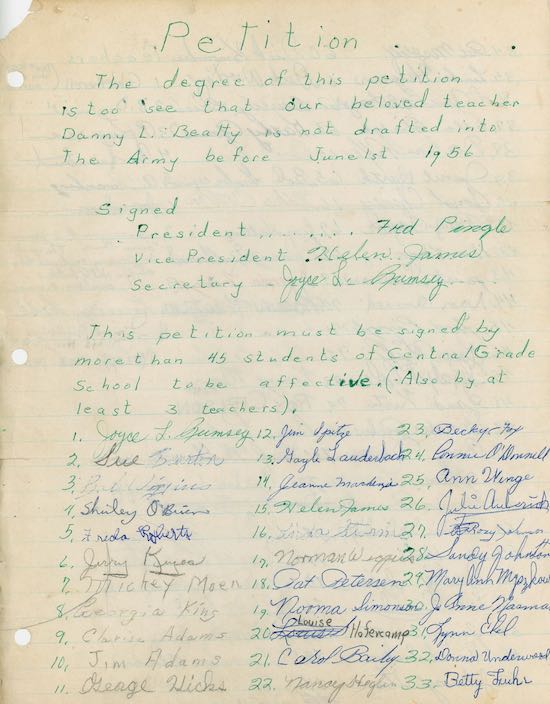 Petition
The degree of this petition
is too see that our beloved teacher
Danny L. Beatty is not drafted into
The Army before June 1st 1956
Signed
President....... Fred Pingle
Vice President Helen James
Secretary - Joyce L. Rumsey
This petition must be signed by
more than 45 students of Central Grade
School to be affective. (Also by at
least 3 teachers).
1. Joyce L. Rumsey 12. Jim Spitze 23. Becky Fox
2. Sue Burton 13. Gayle Lauderback 24. Connie O'Donnell
3. 14. Jeanne 25. Ann Winge
4. Shirley O'Brien 15. Helen James 26. Julie
5. Freda Roberts 16. Linda 27. Johnson
6. Jerry 17. Norman Wiggins 28. Sandy Johnston
7. Mickey Moen 18. Pat Petersen 29. Mary Ann
8. Georgia King 19. Norma Simonson 30. JoAnne
9. Clarise Adams 20. Louise Hofercamp 31. Lynn Ebel
10. Jim Adams 21. Carol Baily 32. Donna Underwood
11. George Hicks 22. Nancy 33. Betty Fuhr